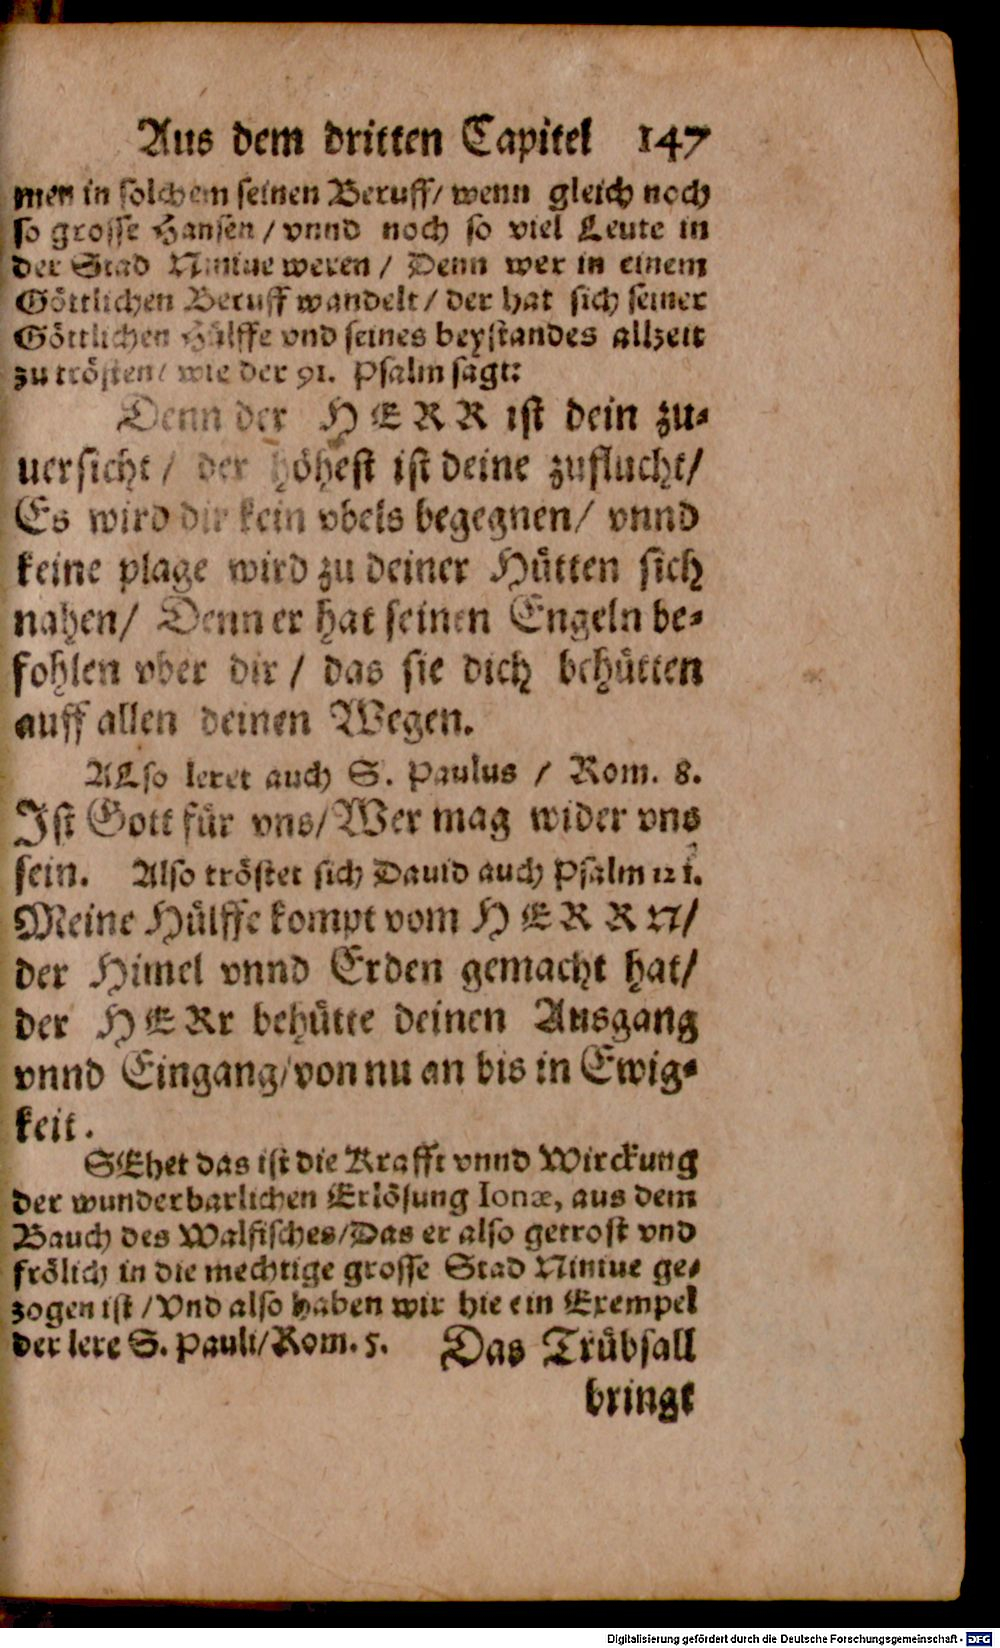 Aus dem dritten Capitel 147
men in solchem seinen Beruff/ wenn gleich noch
so grosse Hansen / vnnd noch so viel Leute in
der Stad Niniue weren / Denn wer in einem
Göttlichen Beruff wandelt / der hat sich seiner
Göttlichen Hülffe vnd seines beystandes allzeit
zu trösten/ wie der 91. Psalm sagt:
Denn der HERR ist dein zu-
uersicht / der höhest ist deine zuflucht/
Es wird dir kein vbels begegnen/ vnnd
keine plage wird zu deiner Hütten sich
nahen/ Denn er hat seinen Engeln be-
fohlen vber dir / das sie dich behütten
auff allen deinen Wegen.
ALso leret auch S. Paulus / Rom. 8.
Ist Gott für vns/ Wer mag wider vns
sein. Also tröstet sich Dauid auch Psalm 121.
Meine Hülffe kompt vom HERRN/
der Himel vnnd Erden gemacht hat/
der HERr behütte deinen Ausgang
vnnd Eingang/ von nu an bis in Ewig-
keit.
SEhet das ist die Krafft vnnd Wirckung
der wunderbarlichen Erlösung Ionæ, aus dem
Bauch des Walfisches/ Das er also getrost vnd
frölich in die mechtige grosse Stad Niniue ge-
zogen ist / Vnd also haben wir hie ein Exempel
der lere S. Pauli/ Rom. 5. Das Trübsall
bringt
Digitalisierung gefördert durch die Deutsche Forschungsgemeinschaft - DFG